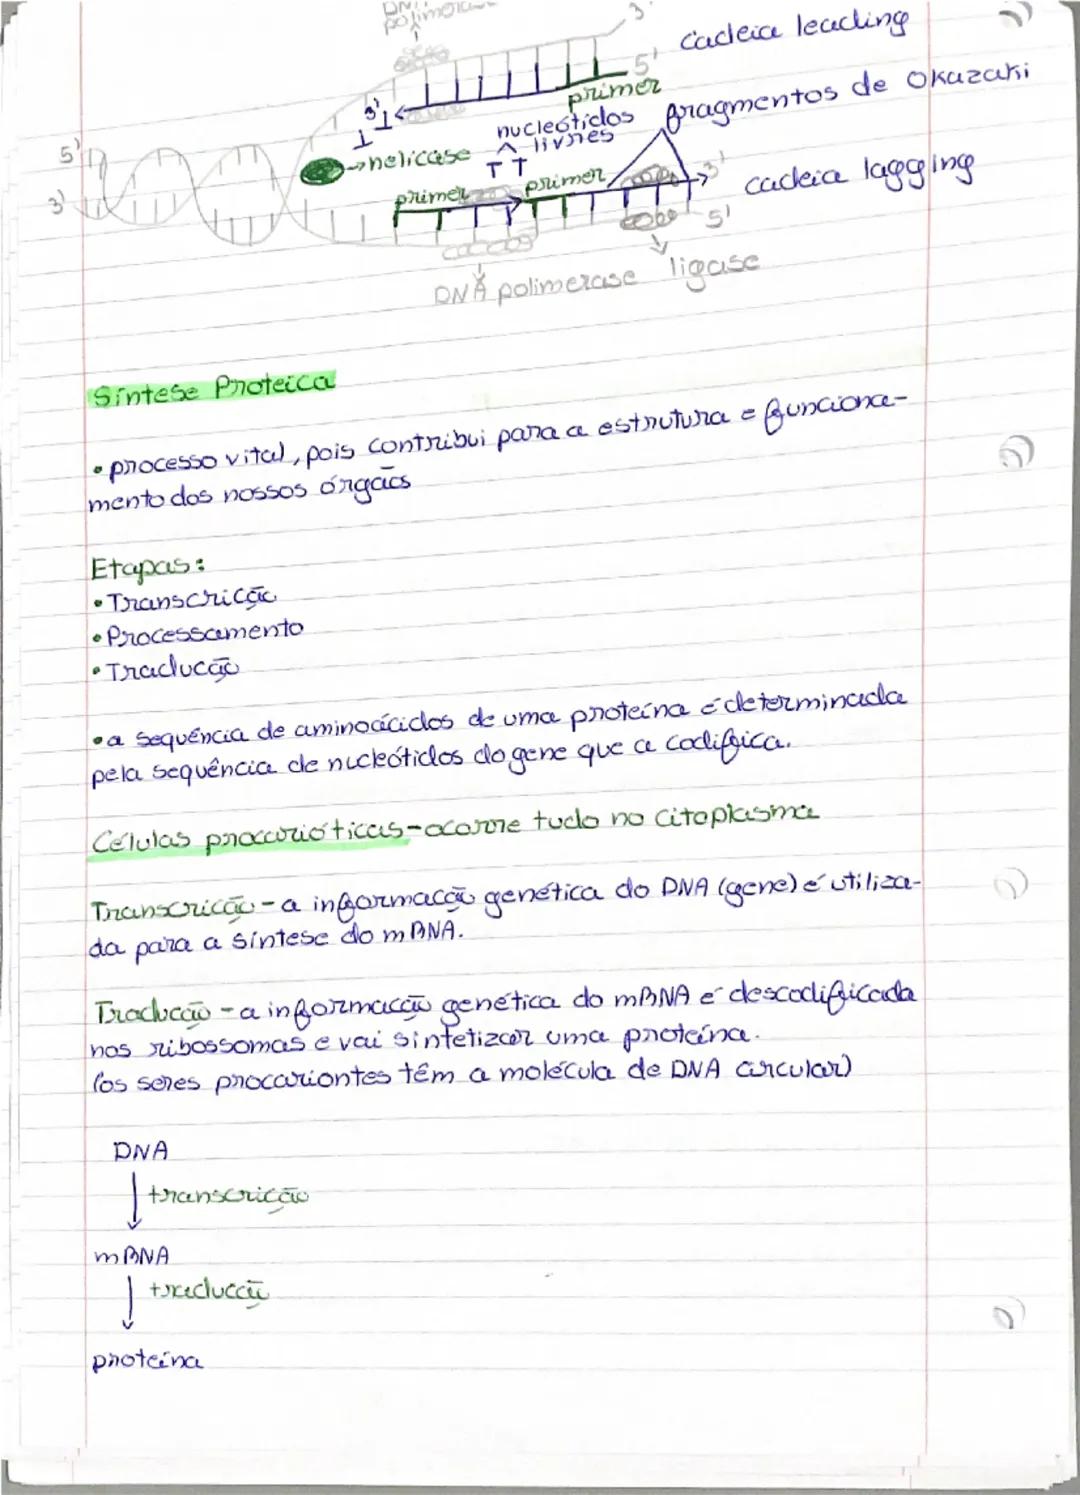 DNA
polimerase
3'
cadeia leading
5'
primer
3'
nucleótidos
livres
fragmentos de Okazaki
5'
helicase
T T
3'
primer
primer
3'
cadeia lagging
5'
DNA polimerase
ligase
Síntese Proteica
• processo vital, pois contribui para a estrutura e funciona-
mento dos nossos órgãos
Etapas:
• Transcrição
• Processamento
• Tradução
• a sequência de aminoácidos de uma proteína é determinada
pela sequência de nucleótidos do gene que a codifica.
Células procarióticas - ocorre tudo no citoplasma
Transcrição - a informação genética do DNA (gene) é utiliza-
da para a síntese do mRNA.
Tradução - a informação genética do mRNA é descodificada
nos ribossomas e vai sintetizar uma proteína.
(os seres procariontes têm a molécula de DNA circular)
DNA
transcrição
mRNA
tradução
proteína